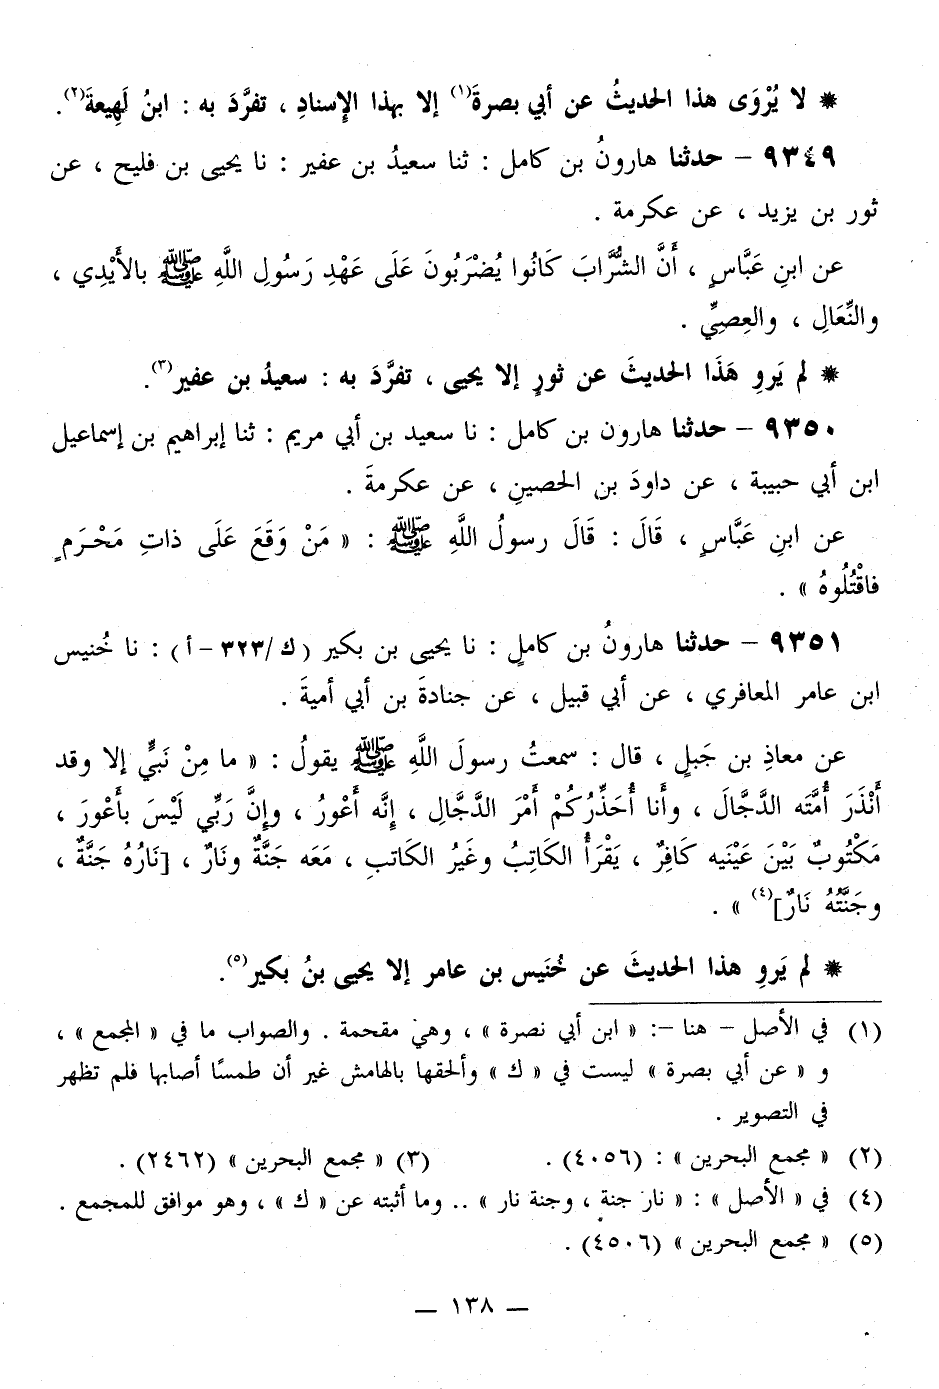 * لا يُرْوَى هذا الحديثُ عن أبي بصرةَ(١) إلا بهذا الإِسنادِ ، تفرَّدَ به : ابنُ لَهِيعةَ(٢).
٩٣٤٩ – حدثنا هارونُ بن كامل : ثنا سعيدُ بن عفير : نا يحيى بن فليح ، عن
ثور بن يزيد ، عن عكرمة .
عن ابنِ عَبَّاسٍ ، أَنَّ الشُّرَّابَ كَانُوا يُضْرَبُونَ عَلَى عَهْدِ رَسُولِ اللَّهِ ﷺ بالأَيْدِي ،
والنِّعَالِ ، والعِصِيِّ .
* لم يَروِ هَذَا الحديثَ عن ثورٍ إلا يحيى ، تفرَّدَ به : سعيدُ بن عفير(٣).
٩٣٥٠ – حدثنا هارون بن كامل : نا سعيد بن أبي مريم : ثنا إبراهيم بن إسماعيل
ابن أبي حبيبة ، عن داودَ بن الحصينِ ، عن عكرمةَ .
عن ابنِ عَبَّاسٍ ، قَالَ : قَالَ رسولُ اللَّهِ ﷺ : « مَنْ وَقَعَ عَلَى ذاتِ مَحْرَمٍ
فاقْتُلُوهُ » .
٩٣٥١ – حدثنا هارونُ بن كاملٍ : نا يحيى بن بكير (ك/٣٢٣ – أ) : نا خُنيس
ابن عامر المعافري ، عن أبي قبيل ، عن جنادةَ بن أبي أميةَ .
عن معاذِ بن جَبلٍ ، قال : سمعتُ رسولَ اللَّهِ ﷺ يقولُ : « ما مِنْ نَبيٍّ إلا وقد
أَنْذَرَ أُمَّتَه الدَّجَّالَ ، وأَنا أُحَذِّرُكُمْ أَمْرَ الدَّجَّالِ ، إِنَّه أَعْورُ ، وإِنَّ رَبِّي لَيْسَ بأَعْورَ ،
مَكْتُوبٌ بَيْنَ عَيْنَيه كَافِرٌ ، يَقْرَأُ الكَاتِبُ وغَيرُ الكَاتبِ ، مَعَه جَنَّةٌ ونَارٌ ، [نَارُهُ جَنَّةٌ ،
وجَنَّتُهُ نَارٌ](٤) » .
* لم يَروِ هذا الحديثَ عن خُنَيس بن عامر إلا يحيى بنُ بكير(٥).
(١) في الأصل – هنا –: « ابن أبي نصرة » ، وهي مقحمة . والصواب ما في « المجمع » ،
و « عن أبي بصرة » ليست في « ك » وألحقها بالهامش غير أن طمسًا أصابها فلم تظهر
في التصوير .
(٢) « مجمع البحرين » : (٤٠٥٦) . (٣) « مجمع البحرين » (٢٤٦٢) .
(٤) في « الأصل » : « نار جنة ، وجنة نار » .. وما أثبته عن « ك » ، وهو موافق للمجمع .
(٥) « مجمع البحرين » (٤٥٠٦) .
— ١٣٨ —